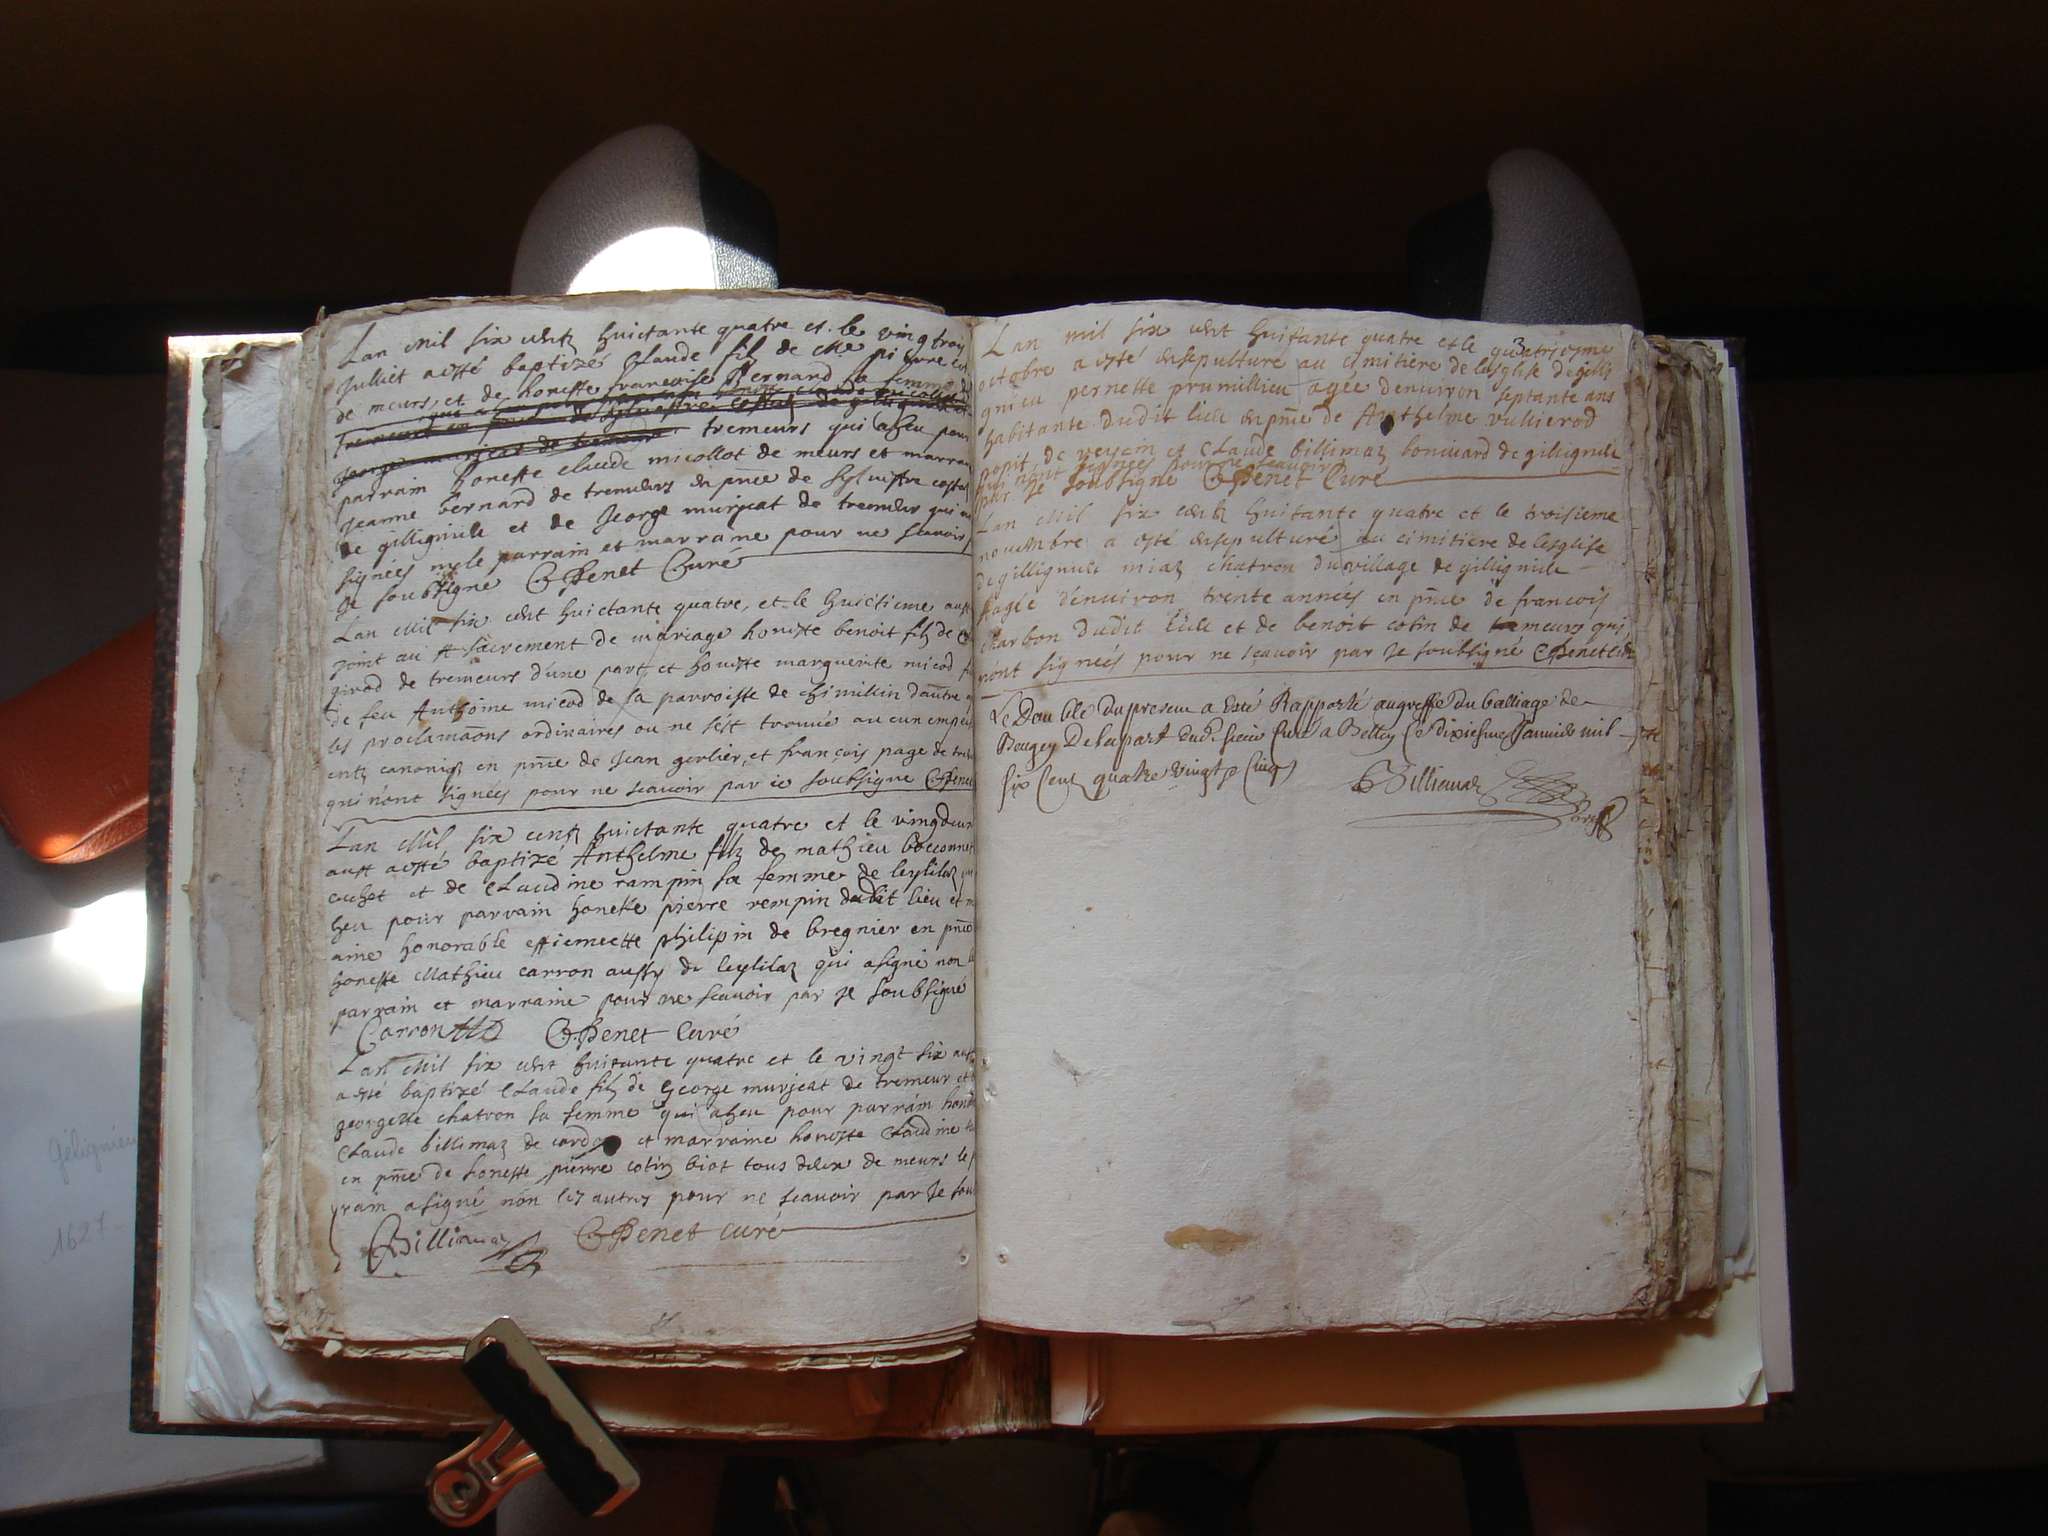 Lan Mil six cent huictante quatre et le vingtroy
Julliet a esté baptizé Claude filz de Me pierre
de meurs, et de honeste francoise Bernard sa femme de
tremeurs qui a heu pour
parrain honeste claude micollot de meurs et marrai
Jeanne bernard de tremeurs en pñce de Sylvestre costaz
de gillignieu et de George murjcat de tremeur qui
signées ny le parrain et marrane pour ne scavoir
Je soubsigne C Penet Curé
Lan Mil six cent huictante quatre, et le huictieme aust
joint au st sacrement de mariage honeste benoit filz de
girod de tremeurs dune part, et honeste marguerite micod
de feu Anthoine micod de la parroisse de chimillin dautre
les proclamãons ordinaires ou ne sest trouvé aucun empes
entz canoniqz en pñce de Jean gerlier, et françois page de
qui n'ont signées pour ne scavoir par je soubsigne C Penet
Lan Mil six centz huictante quatre et le vingdeux
aust a esté baptizé Anthelme filz de mathieu
cuchet et de Claudine rampin sa femme de leylilaz
heu pour parrain honeste pierre rempin dudit lieu et
aine honorable estiennette philipin de bregnier en pñce
honeste Mathieu carron aussy de leylilaz qui a signé non
parrain et marraine pour ne scavoir par Je soubsigné
Carron C Penet Curé
Lan Mil six cent huitante quatre et le vingt six aust
a esté baptizé Claude filz de George murjcat de tremeur et
georgette chatron sa femme qui a heu pour parrain hon
Claude billimaz de et marraine honeste Claudine
en pñce de honeste pierre cotin biot tous deux de meurs le
rain a signé non les autres pour ne scavoir par Je sou
Billimaz C Penet curé
Lan mil six cent huitante quatre et le quatriesme
octobre a esté ensepulturé au cimitiere de lesglise de gilli
gnieu pernette prumillieu agée denviron septante ans
habitante dudit lieu en pñce de Anthelme vullierod
popit de veyrin et Claude billimaz bonivard de gillignieu
qui n'ont signées pour ne scavoir
par Je soubsigné C Penet Curé
Lan Mil six centz huitante quatre et le troisieme
novembre a esté ensepulturé au cimitiere de lesglise
de gillignieu miaz chatron du village de gillignieu
agée denviron trente années en pñce de francois
charbon dudit lieu et de benoit cotin de tremeurs qui
n'ont signées pour ne scavoir par Je soubsigné C Penet curé
Le Double du present a esté Rapporté au greffe du balliage de
Beugey De la part dudt sieur Curé a Belley Ce dixiesme Janvier mil
six Cent quatre vingt Cinq
Billiemaz
Gélignieu
1627